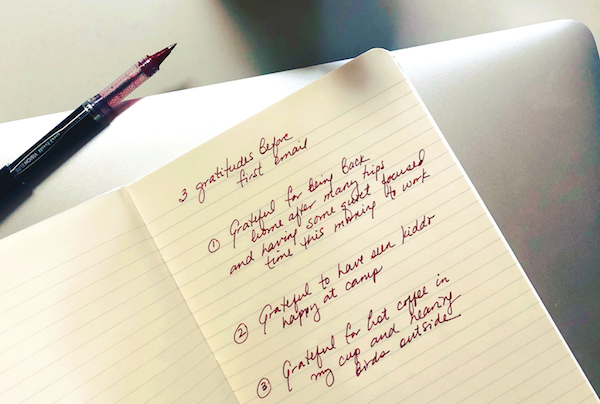 3 gratitudes before
first email
① Grateful for being back
home after many trips
and having some quiet focused
time this morning to work
② Grateful to have seen kiddo
happy at camp
③ Grateful for hot coffee in
my cup and hearing
birds outside